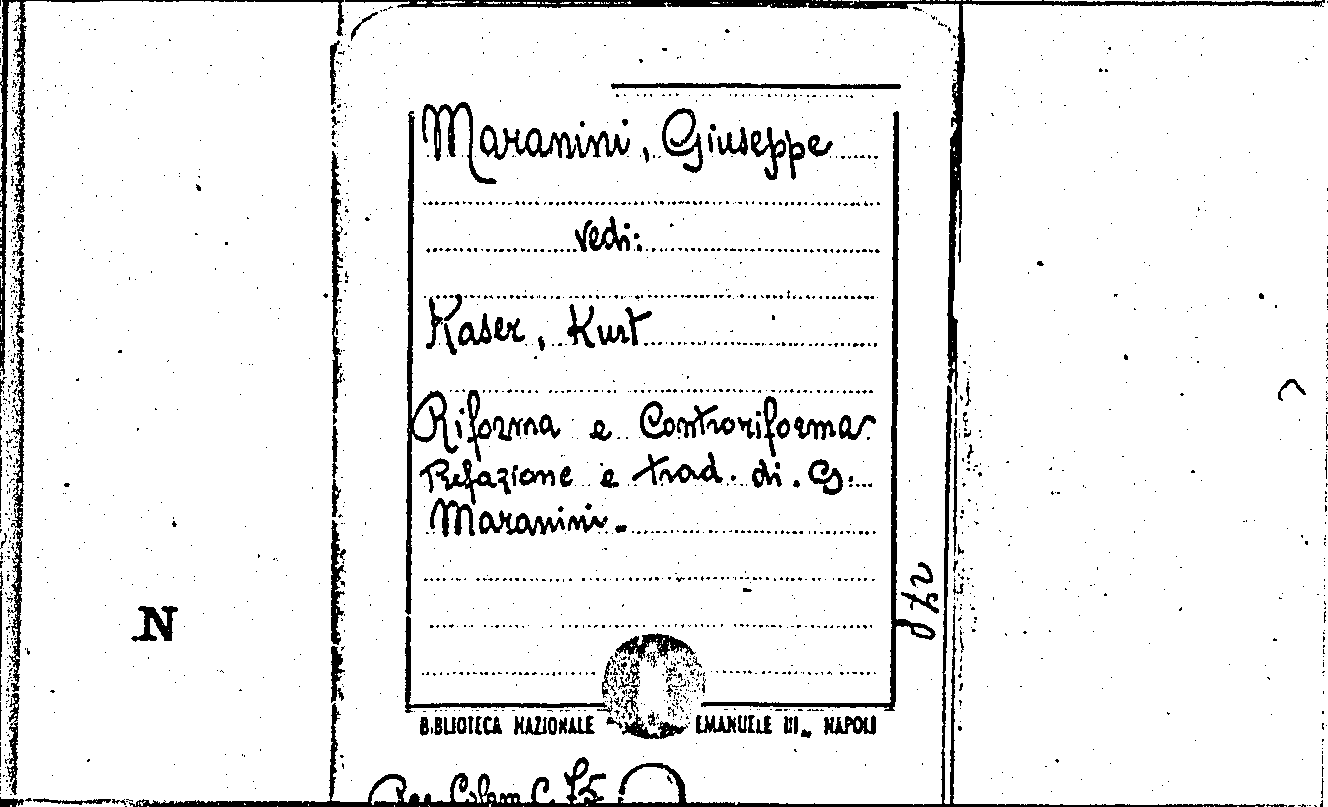 Maranini, Giuseppe
vedi:
Kaser, Kurt
Riforma e Controriforma
Prefazione e trad. di. G.
Maranini.
N
BIBLIOTECA NAZIONALE EMANUELE III„ NAPOLI